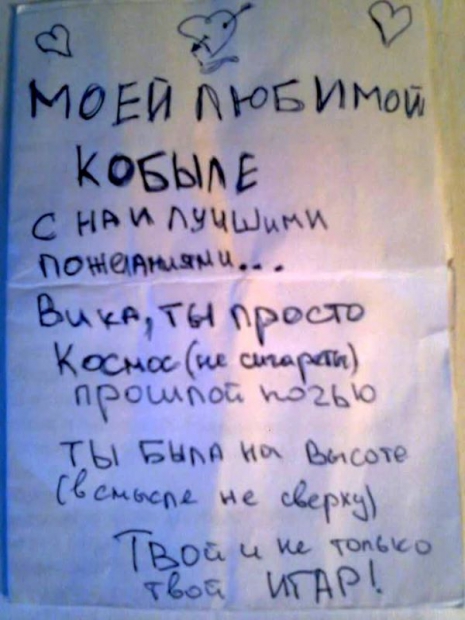 МОЕЙ ЛЮБИМОЙ
КОБЫЛЕ
С НАИЛУЧШИМИ
ПОЖЕЛАНИЯМИ...
Вика, ты просто
Космос (не сигареты)
прошлой ночью
ТЫ БЫЛА на Высоте
(в смысле не сверху)
Твой и не только
твой ИГАР!